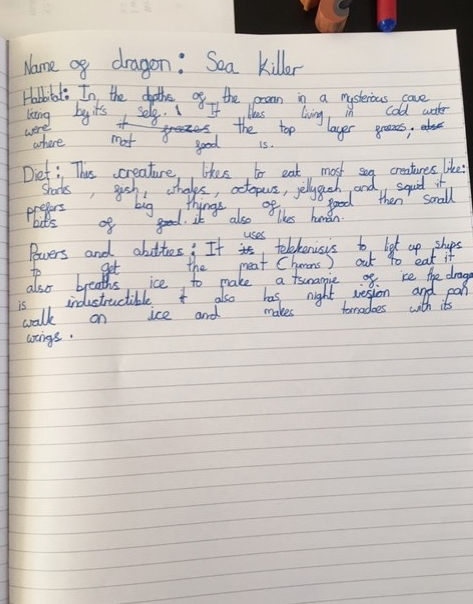 Name of dragon: Sea Killer
Habbitat: In the depths of the ocean in a mysterious cave
living by it's self. It likes living in cold water
were it freezes the top layer freezes, also
where most food is.
Diet: This creature likes to eat most sea creatures like:
Sharks, fish, whales, octopus, jellyfish and squid it
prefers big things of food then small
bits of food. it also likes human.
Powers and abilities: It its uses telekenisis to lift up ships
to get the meat (humans) out to eat it
also breaths ice to make a tsunamie of ice the dragon
is indistructible it also has night vesion and can
walk on ice and makes tornadoes with its
wings.